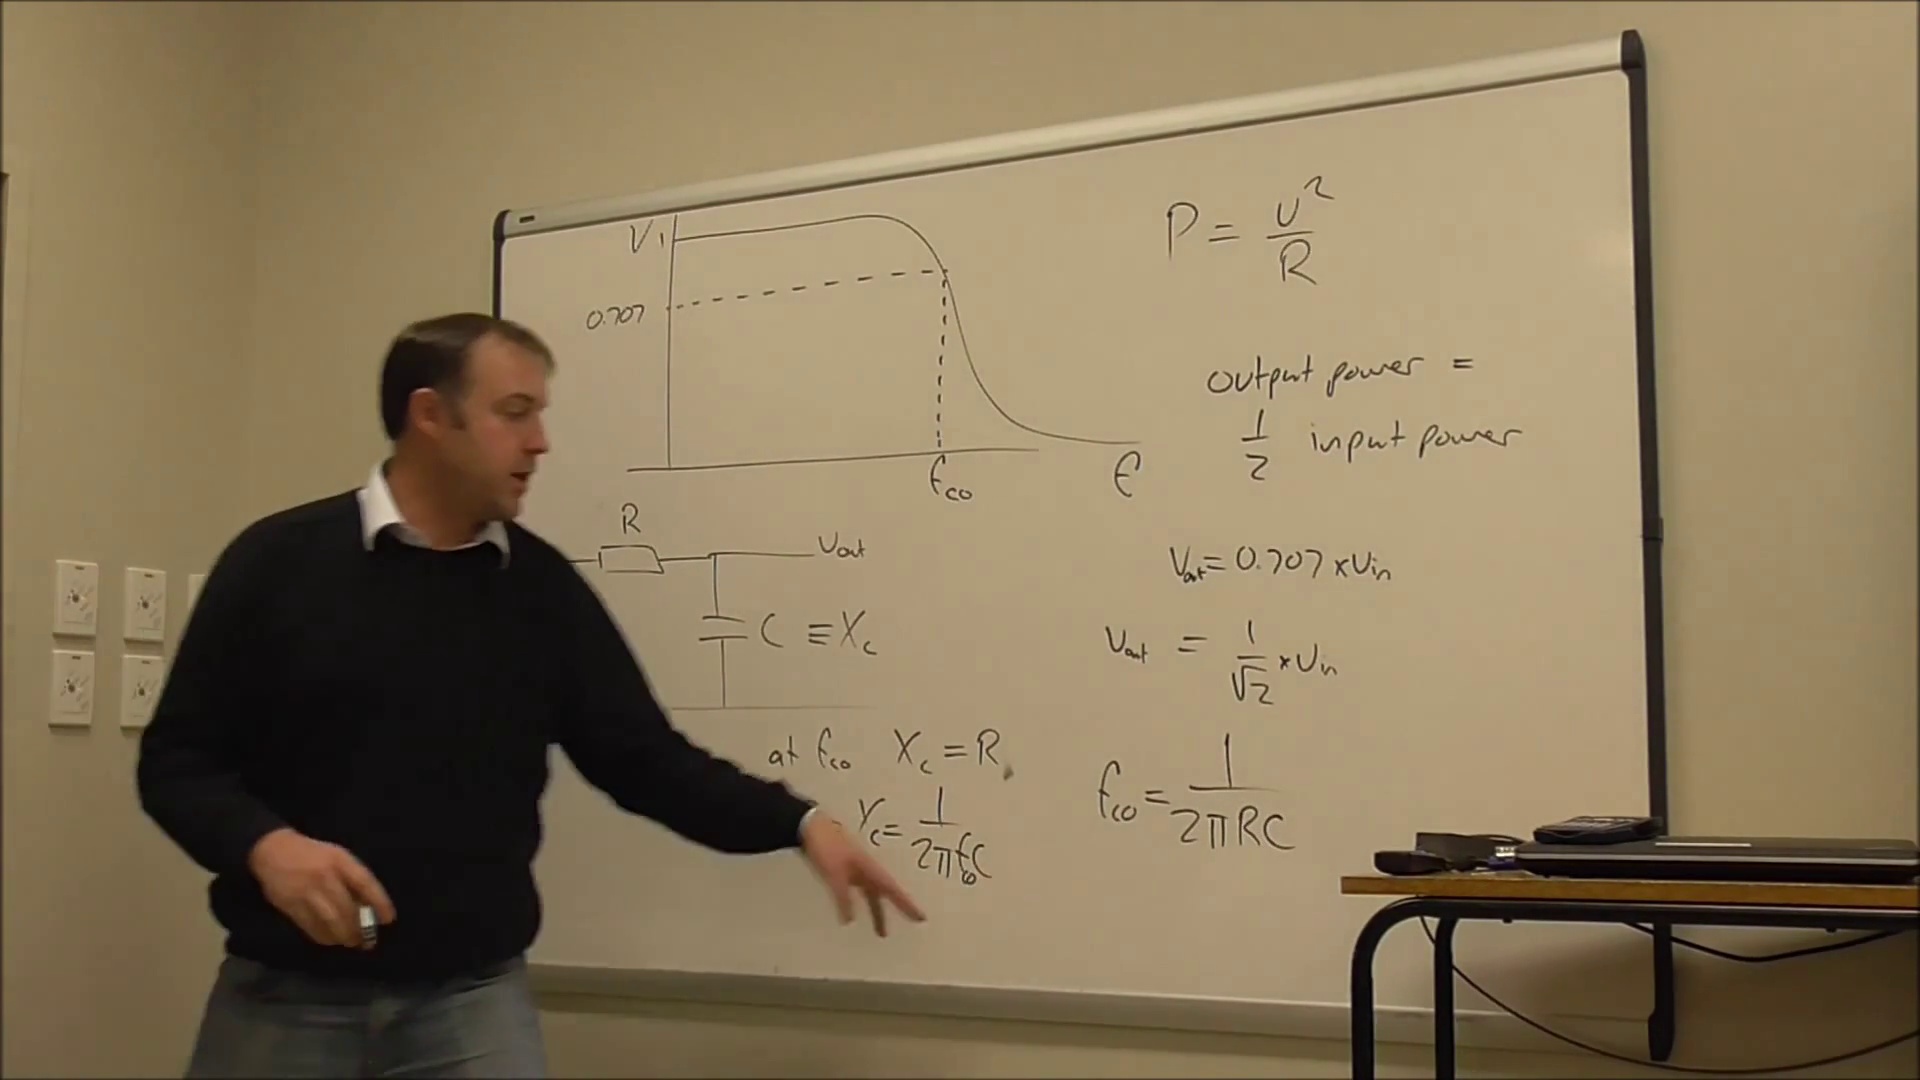 V 1
0.707
fco
f
R
Vout
C ≡ Xc
at fco Xc = R
Xc = 1/2πfcoC
P = V²/R
output power =
1/2 input power
Vout = 0.707 × Vin
Vout = 1/√2 × Vin
fco = 1/2πRC